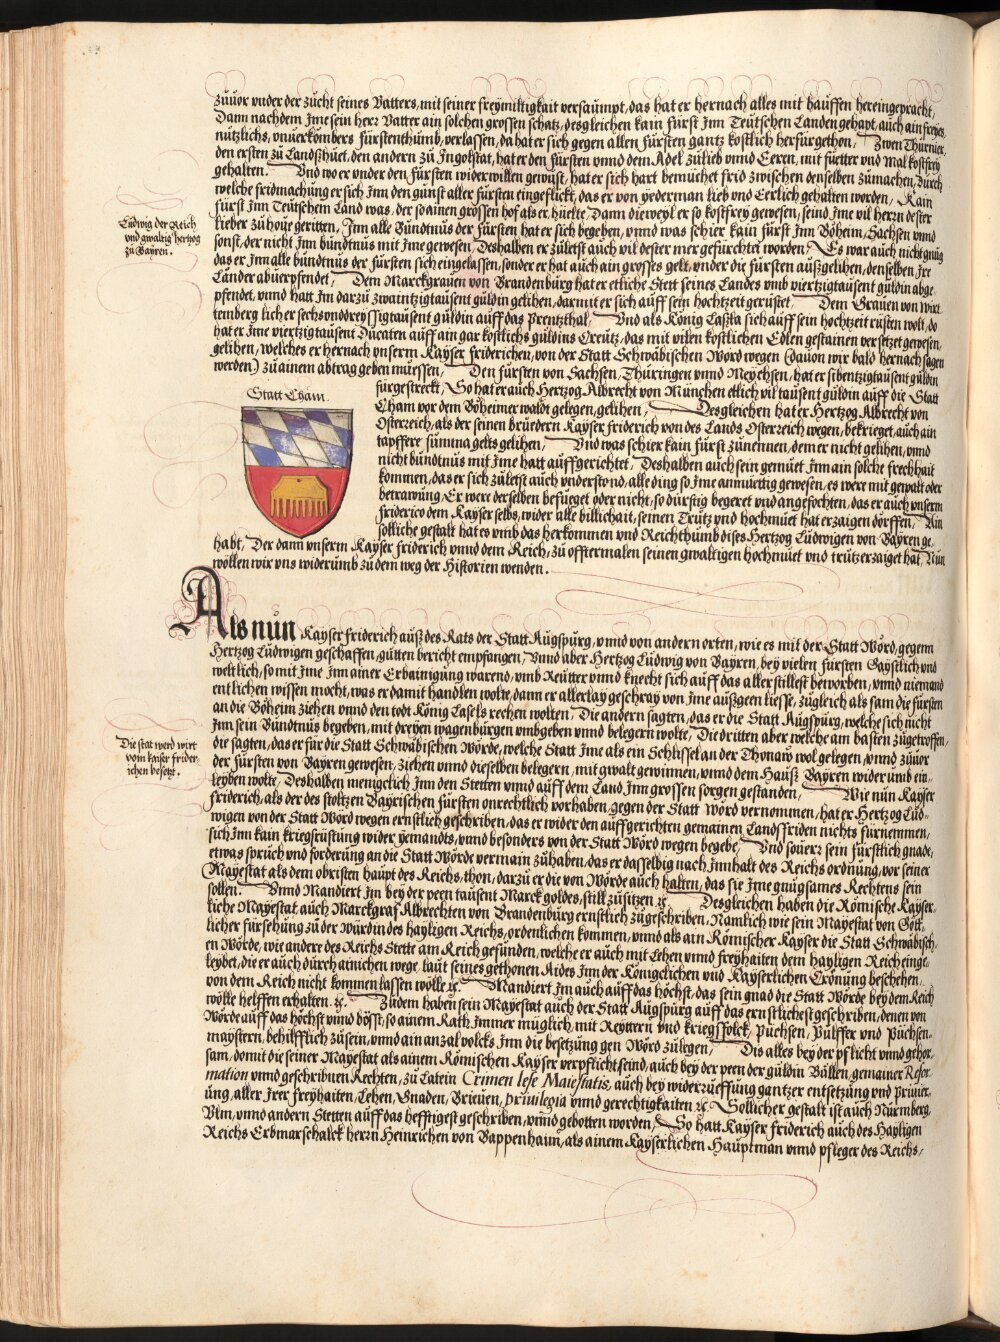 zůuor vnder der zücht seines Vatters, mit seiner freymiltigkait versaümpt, das hat er hernach alles mit hauffen hereingepracht,
Dann nachdem Jme sein herr Vatter ain solchen grossen schatz, desgleichen kain fürst Jnn Teütschen Landen gehapt, auch ain freyes,
nützlichs, vnuerkombers fürstenthümb, verlassen, da hat er sich gegen allen fürsten gantz kostlich herfürgethon, Zwen Thürnier,
den ersten zů Landßhůet, den andern zů Jngolstat, hat er den fürsten vnnd dem Adel zůlieb vnnd Eeren, mit füetter vnd Mal kostfrey
gehalten. Vnd wo er vnder den fürsten widerwillen gewüst, hat er sich hart bemüchet frid zwischen denselben zůmachen, durch
welche fridmachüng er sich Jnn den günst aller fürsten eingeflickt, das er von yederman lieb vnd Eerlich gehalten worden, Kain
fürst Jnn Teütschem Land was, der so ainen grossen hof als er, hüelte, Dann dieweyl er so kostfrey gewesen, seind Jme vil herrn dester
lieber zů hoüe geritten, Jnn alle Bündtnüs der fürsten hat er sich begeben, vnnd was schier kain fürst Jnn Böheim, Sachsen vnnd
sonst, der nicht Jnn bündtnüs mit Jme gewesen, Deshalben er zületst auch vil dester mer gefürchtet worden, Es war auch nicht gnüg
das er Jnn alle bündtnüs der fürsten sich eingelassen, sonder er hat auch ain grosses gelt, vnder die fürsten aüßgelihen, denselben Jre
Lander abuerpfendet, Dem Marckgrauen von Brandenbürg hat er etliche Stett seines Landes vmb viertzigtausent güldin abge
pfendet, vnnd hatt Jm darzů zwaintzigtausent güldin gelihen, darmit er sich auff sein hochtzeit gerüstet, Dem Grauen von Wirt
temberg lich er sechsvnddreyssigtausent güldin auff das Prentzthal, Vnd als König Laßla sich auff sein hochtzeit rüsten wolt, do
hat er Jme viertzigtausent Ducaten auff ain gar kostlichs güldins Creütz, das mit vilen kostlichen Edlen gestainen versetzet gewesen,
gelihen, welches er hernach vnserm Kayser friderichen, von der Statt Schwäbischen Word wegen (dauon wir bald hernach sagen
werden) zů ainem abtrag geben müessen, Den fürsten von Sachsen, Thüringen vnnd Meychsen, hat er sibentzigtausent güldin
fürgestreckt, So hat er auch Hertzog Albrecht von München etlich vil tausent güldin auff die Statt
Cham vor dem Böheimer waldt gelegen, gelihen, Desgleichen hat er Hertzog Albrecht von
Osterreich, als der seinen brüedern Kayser friderich von des Lands Osterreich wegen, bekrieget, auch ain
tapffere sümma gelts gelihen, Vnd was schier kain fürst zunennen, dem er nicht gelihen, vnnd
nicht bündtnüs mit Jme hatt aüffgerichtet, Deshalben auch sein gemüet Jnn ain solche frechhait
kommen, das er sich zületst auch vnderstund, alle ding so Jme anmüettig gewesen, es were mit gewalt oder
betrawüng, Er were derselben befüeget oder nicht, so dürstig begeret vnd angefochten, das er auch vnserm
friderico dem Kayser selbs, wider alle billichait, seinen Trütz vnd hochmüet hat erzaigen dörffen, Nün
solliche gestalt hat es vmb das herkommen vnd Reichthümb dises Hertzog Ludwigen von Bayren ge,
habt, Der dann vnserm Kayser friderich vnnd dem Reich, zů offtermalen seinen gwaltigen hochmüet vnd trützerzaiget hat, Nün
wöllen wir vns widerümb zů dem weg der Historien wenden.
Lüdwig der Reich
vnd gwaltig hertzog
zů Bayren.
Statt Cham.
Als nün Kayser friderich aüß des Rats der Statt Augspürg, vnnd von andern orten, wie es mit der Statt Word, gegenn
Hertzog Lüdwigen geschaffen, gütten bericht empfangen, Vnnd aber Hertzog Lüdwig von Bayren, bey vielen fürsten Gaystlich vnd
weltlich, so mit Jme Jnn ainer Erbainigüng warend, vmb Reütter vnnd knecht sich auff das allerstillest beworben, vnnd niemand
entlichen wissen mocht, was er damit handlen wolte, dann er allerlay geschray von Jme aüßgeen liesse, zügleich als sam die fürsten
an die Böheim ziehen vnnd den todt König Lasels rechen wolten, Die andern sagten, das er die Statt Augspürg, welche sich nicht
Jnn sein Bündtnüs begeben, mit dreyen wagenbürgen vmbgeben vnnd belegern wolte, Die dritten aber welche am basten zügetroffen,
die sagten, das er für die Statt Schwäbischen Wörde, welche Statt Jme als ein Schlüssel an der Thonaw wol gelegen, vnnd züuor
der fürsten von Bayren gewesen, ziehen vnnd dieselben belegern, mit gwalt gewinnen, vnnd dem Hauß Bayren widerümb ein,
leyben wolte, Deshalben menigclich Jnn den Stetten vnnd auff dem Land Jnn grossen sorgen gestanden, Wie nün Kayser
friderich, als der des stoltzen Bayrischen fürsten onrechtlich vorhaben, gegen der Statt Word vernommen, hat er Hertzog Lüd-
wigen von der Statt Word wegen ernstlich geschriben, das er wider den auffgerichten gemainen Landsfriden nichts fürnemmen,
sich Jnn kain kriegsrüstüng wider yemandts, vnnd besonders von der Statt Word wegen begebe, Vnd souerr sein fürstlich gnade,
etwas sprüch vnd forderüng an die Statt Wörde vermain zühaben, das er dasselbig nach Jnnhalt des Reichs ordnüng, vor seiner
Mayestat als dem obristen haupt des Reichs, thon, darzů er die von Wörde auch halten, das sie Jme gnügsames Rechtens sein
sollen. Vnnd Mandiert Jm bey der peen tausent Marck goldes, still zůsitzen ꝛc. Desgleichen haben die Römische Kayser-
liche Mayestat auch Marckgraf Albrechten von Brandenbürg ernstlich zügeschriben, Namlich wie sein Mayestat von Gött-
licher fürsehüng zů der würdin des hayligen Reichs, ordenlichen kommen, vnnd als ain Römischer Kayser die Statt Schwäbisch-
en Wörde, wie andere des Reichs Stette am Reich gefünden, welche er auch mit Lehen vnnd freyhaiten dem hayligen Reich einge-
leybet, die er auch dürch ainichen wege, laüt seines gethonen Aides Jnn der Königclichen vnd Kayserlichen Crönüng beschehen,
von dem Reich nicht kommen lassen wölle ꝛc. Mandiert Jm auch auff das höchst, das sein gnad die Statt Wörde bey dem Reich
wölle helffen erhalten. ꝛc. Züdem haben sein Mayestat auch der Statt Augspürg auff das ernstlichest geschriben, denen von
Wörde auff das höchst vnnd bösst, so ainem Rath Jmmer müglich, mit Reyttern vnd kriegsfolck, Püchsen, Pülffer vnd Püchsen-
maystern, behilfflich züsein, vnnd ain anzal volcks Jnn die besetzüng gen Wörd zülegen, Dis alles bey der pflicht vnnd gehor,
sam, domit die seiner Mayestat als ainem Römischen Kayser verpflicht seind, auch bey der peen der güldin Büllen, gemainer Refor
mation vnnd geschribnen Rechten, zů Latein Crimen lese Maiestatis, auch bey widerrüeffüng gantzer entsetzüng vnd priuier,
üng, aller Jrer freyhaiten, Lehen, Gnaden, Brieüen, priuilegia vnnd gerechtigkaiten ꝛc. Sollicher gestalt ist auch Nürmberg,
Vlm, vnnd andern Stetten auff das hefftigest geschriben, vnnd gebotten worden, So hatt Kayser friderich auch des Hayligen
Reichs Erbmarschalck herrn Heinrichen von Bappenhaim, als ainem Kayserlichen Hauptman vnnd pfleger des Reichs,
Die stat werd wirt
vom kaiser frider-
ichen besetzt.